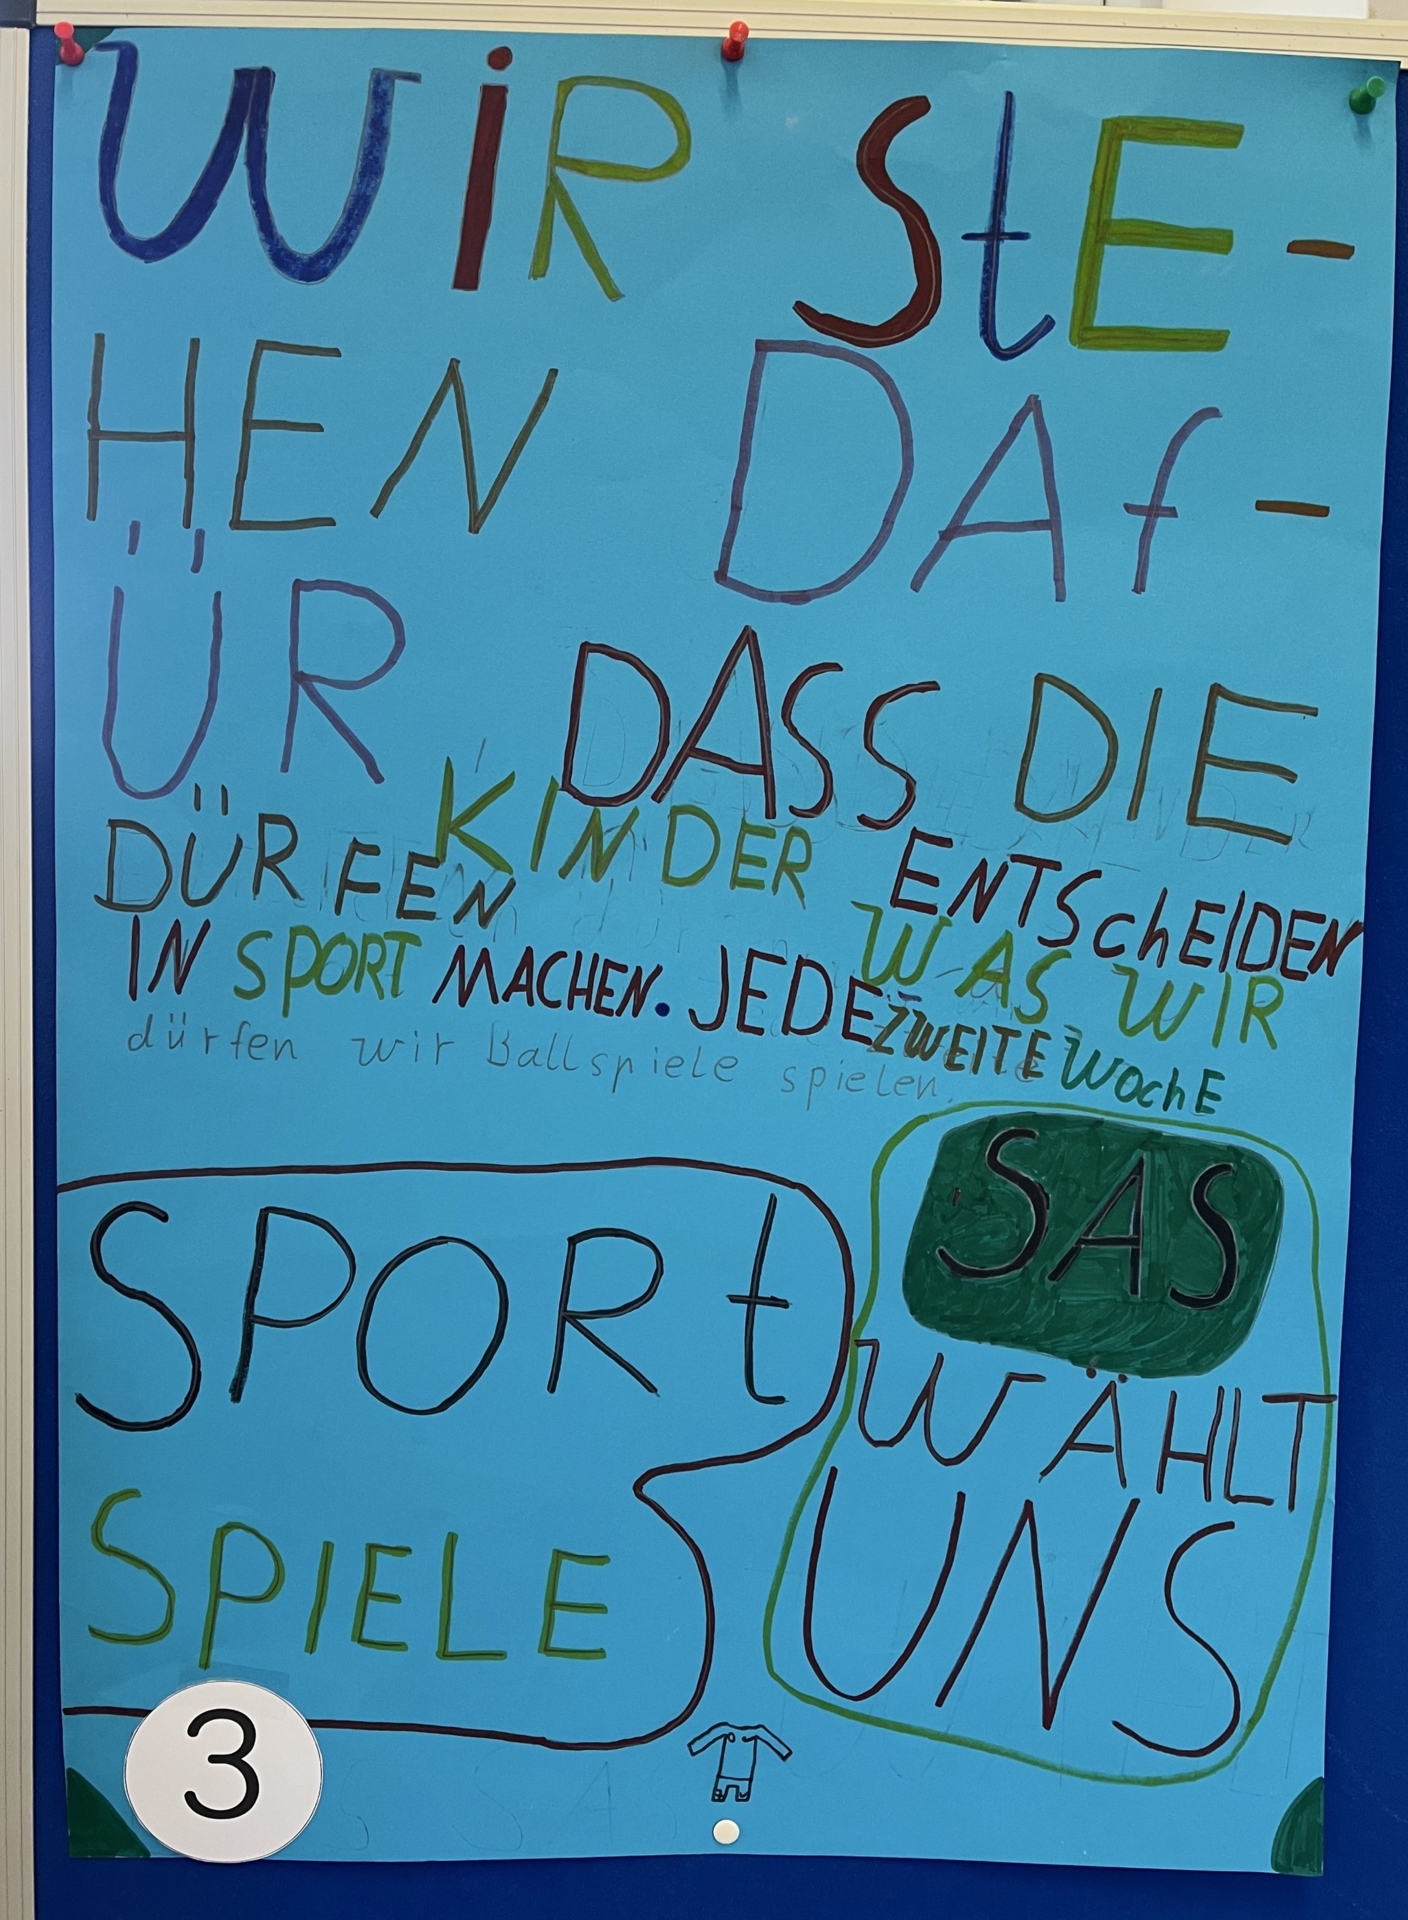 WiR StE-
HEN DAf-
ÜR DASS DIE
KINDER
DÜRFEN ENTSchEIDEN
WAS WIR
IN SPORT MACHEN. JEDE ZWEITE WochE
dürfen wir Ballspiele spielen.
SAS
WÄHLT
UNS
SPORt
SPIELE
3